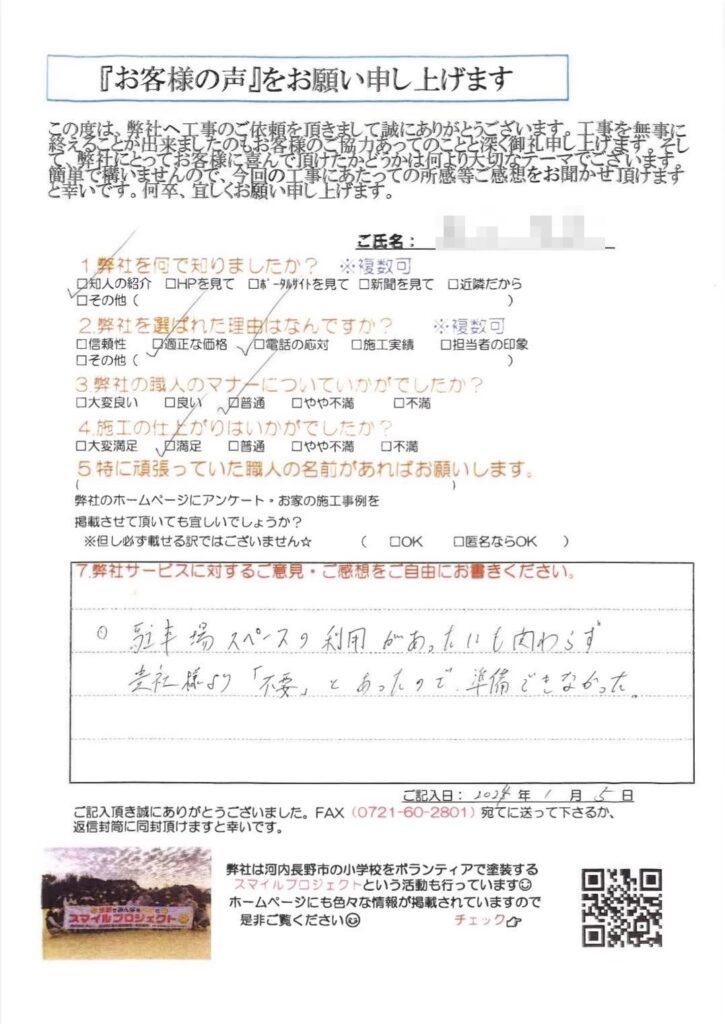 『お客様の声』をお願い申し上げます
この度は、弊社へ工事のご依頼を頂きまして誠にありがとうございます。工事を無事に
終えることが出来ましたのもお客様のご協力あってのことと深く御礼申し上げます。そし
て、弊社にとってお客様に喜んで頂けたかどうかは何より大切なテーマでございます。
簡単で構いませんので、今回の工事にあたっての所感等ご感想をお聞かせ頂けます
と幸いです。何卒、宜しくお願い申し上げます。
ご氏名：
1.弊社を何で知りましたか？ ※複数可
□知人の紹介 □HPを見て □ﾎﾟｰﾀﾙｻｲﾄを見て □新聞を見て □近隣だから
□その他（ ）
2.弊社を選ばれた理由はなんですか？ ※複数可
□信頼性 □適正な価格 □電話の応対 □施工実績 □担当者の印象
□その他（ ）
3.弊社の職人のマナーについていかがでしたか？
□大変良い □良い □普通 □やや不満 □不満
4.施工の仕上がりはいかがでしたか？
□大変満足 □満足 □普通 □やや不満 □不満
5.特に頑張っていた職人の名前があればお願いします。
（ ）
弊社のホームページにアンケート・お家の施工事例を
掲載させて頂いても宜しいでしょうか？
※但し必ず載せる訳ではございません☆ （ □OK □匿名ならOK ）
7.弊社サービスに対するご意見・ご感想をご自由にお書きください。
○ 駐車場スペースの利用があったにも関わらず
貴社様より「不要」とあったので、準備できなかった。
ご記入日： 2024年 1月 5日
ご記入頂き誠にありがとうございました。FAX（0721-60-2801）宛てに送って下さるか、
返信封筒に同封頂けますと幸いです。
弊社は河内長野市の小学校をボランティアで塗装する
スマイルプロジェクトという活動も行っています☺
ホームページにも色々な情報が掲載されていますので
是非ご覧ください☺ チェック☞
スマイルプロジェクト